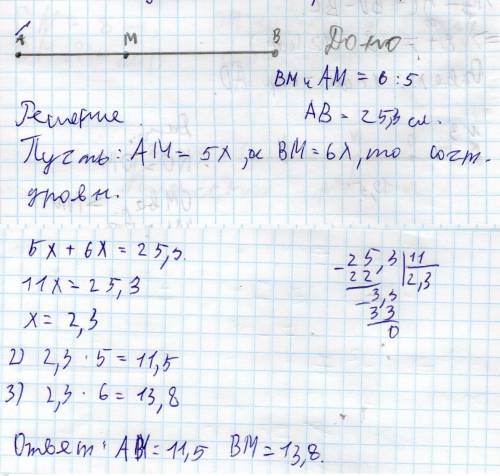 A M B
Дано
BM и AM = 6 : 5
AB = 25,3 см.
Решение.
Пусть: AM = 5x, а BM = 6x, то сост.
уравн.
5x + 6x = 25,3.
11x = 25,3
x = 2,3
2) 2,3 · 5 = 11,5
3) 2,3 · 6 = 13,8
- 25,3 | 11
22 2,3
- 3,3
3 3
0
Ответ: AM = 11,5 BM = 13,8.